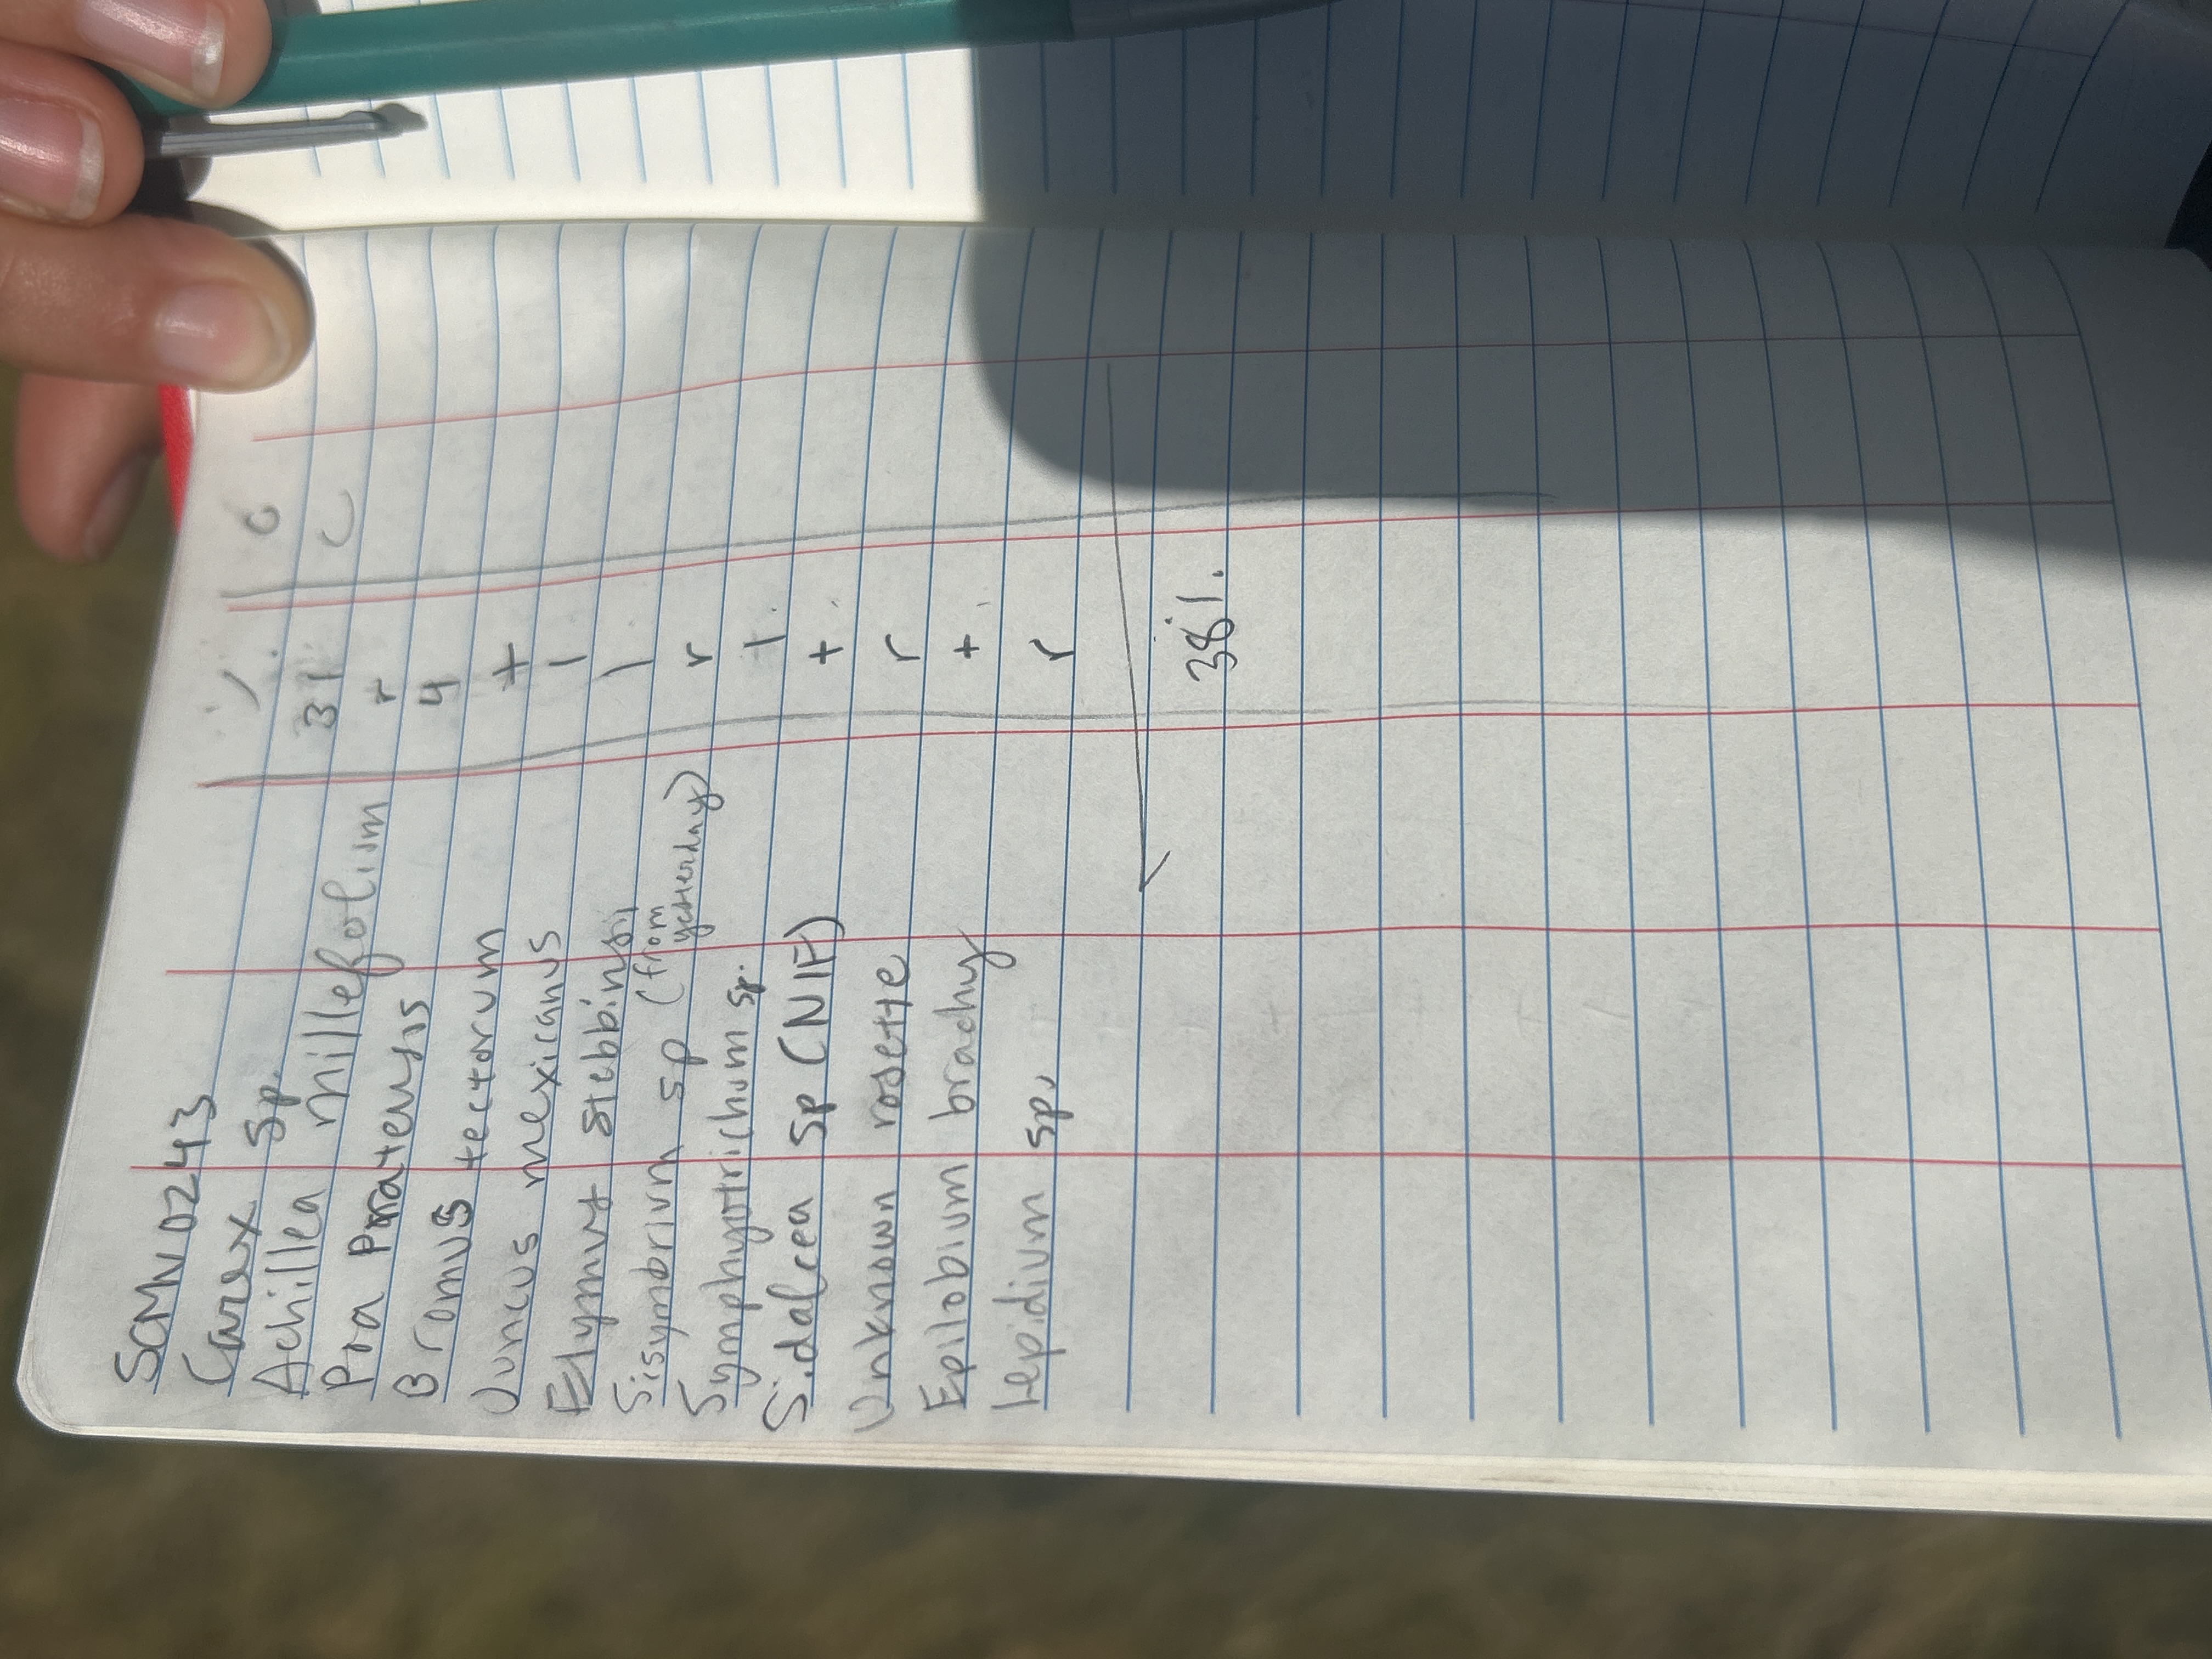 SCMN0243 % O
Carex sp. 31 C
Achillea millefolium r
Poa pratensis 4
Bromus tectorum +
Juncus mexicanus 1
Elymus stebbinsii 1
Sisymbrium sp (from yesterday) r
Symphyotrichum sp. 1
Sidalcea sp (NIF) +
Unknown rosette r
Epilobium brachy +
Lepidium sp. r
38%